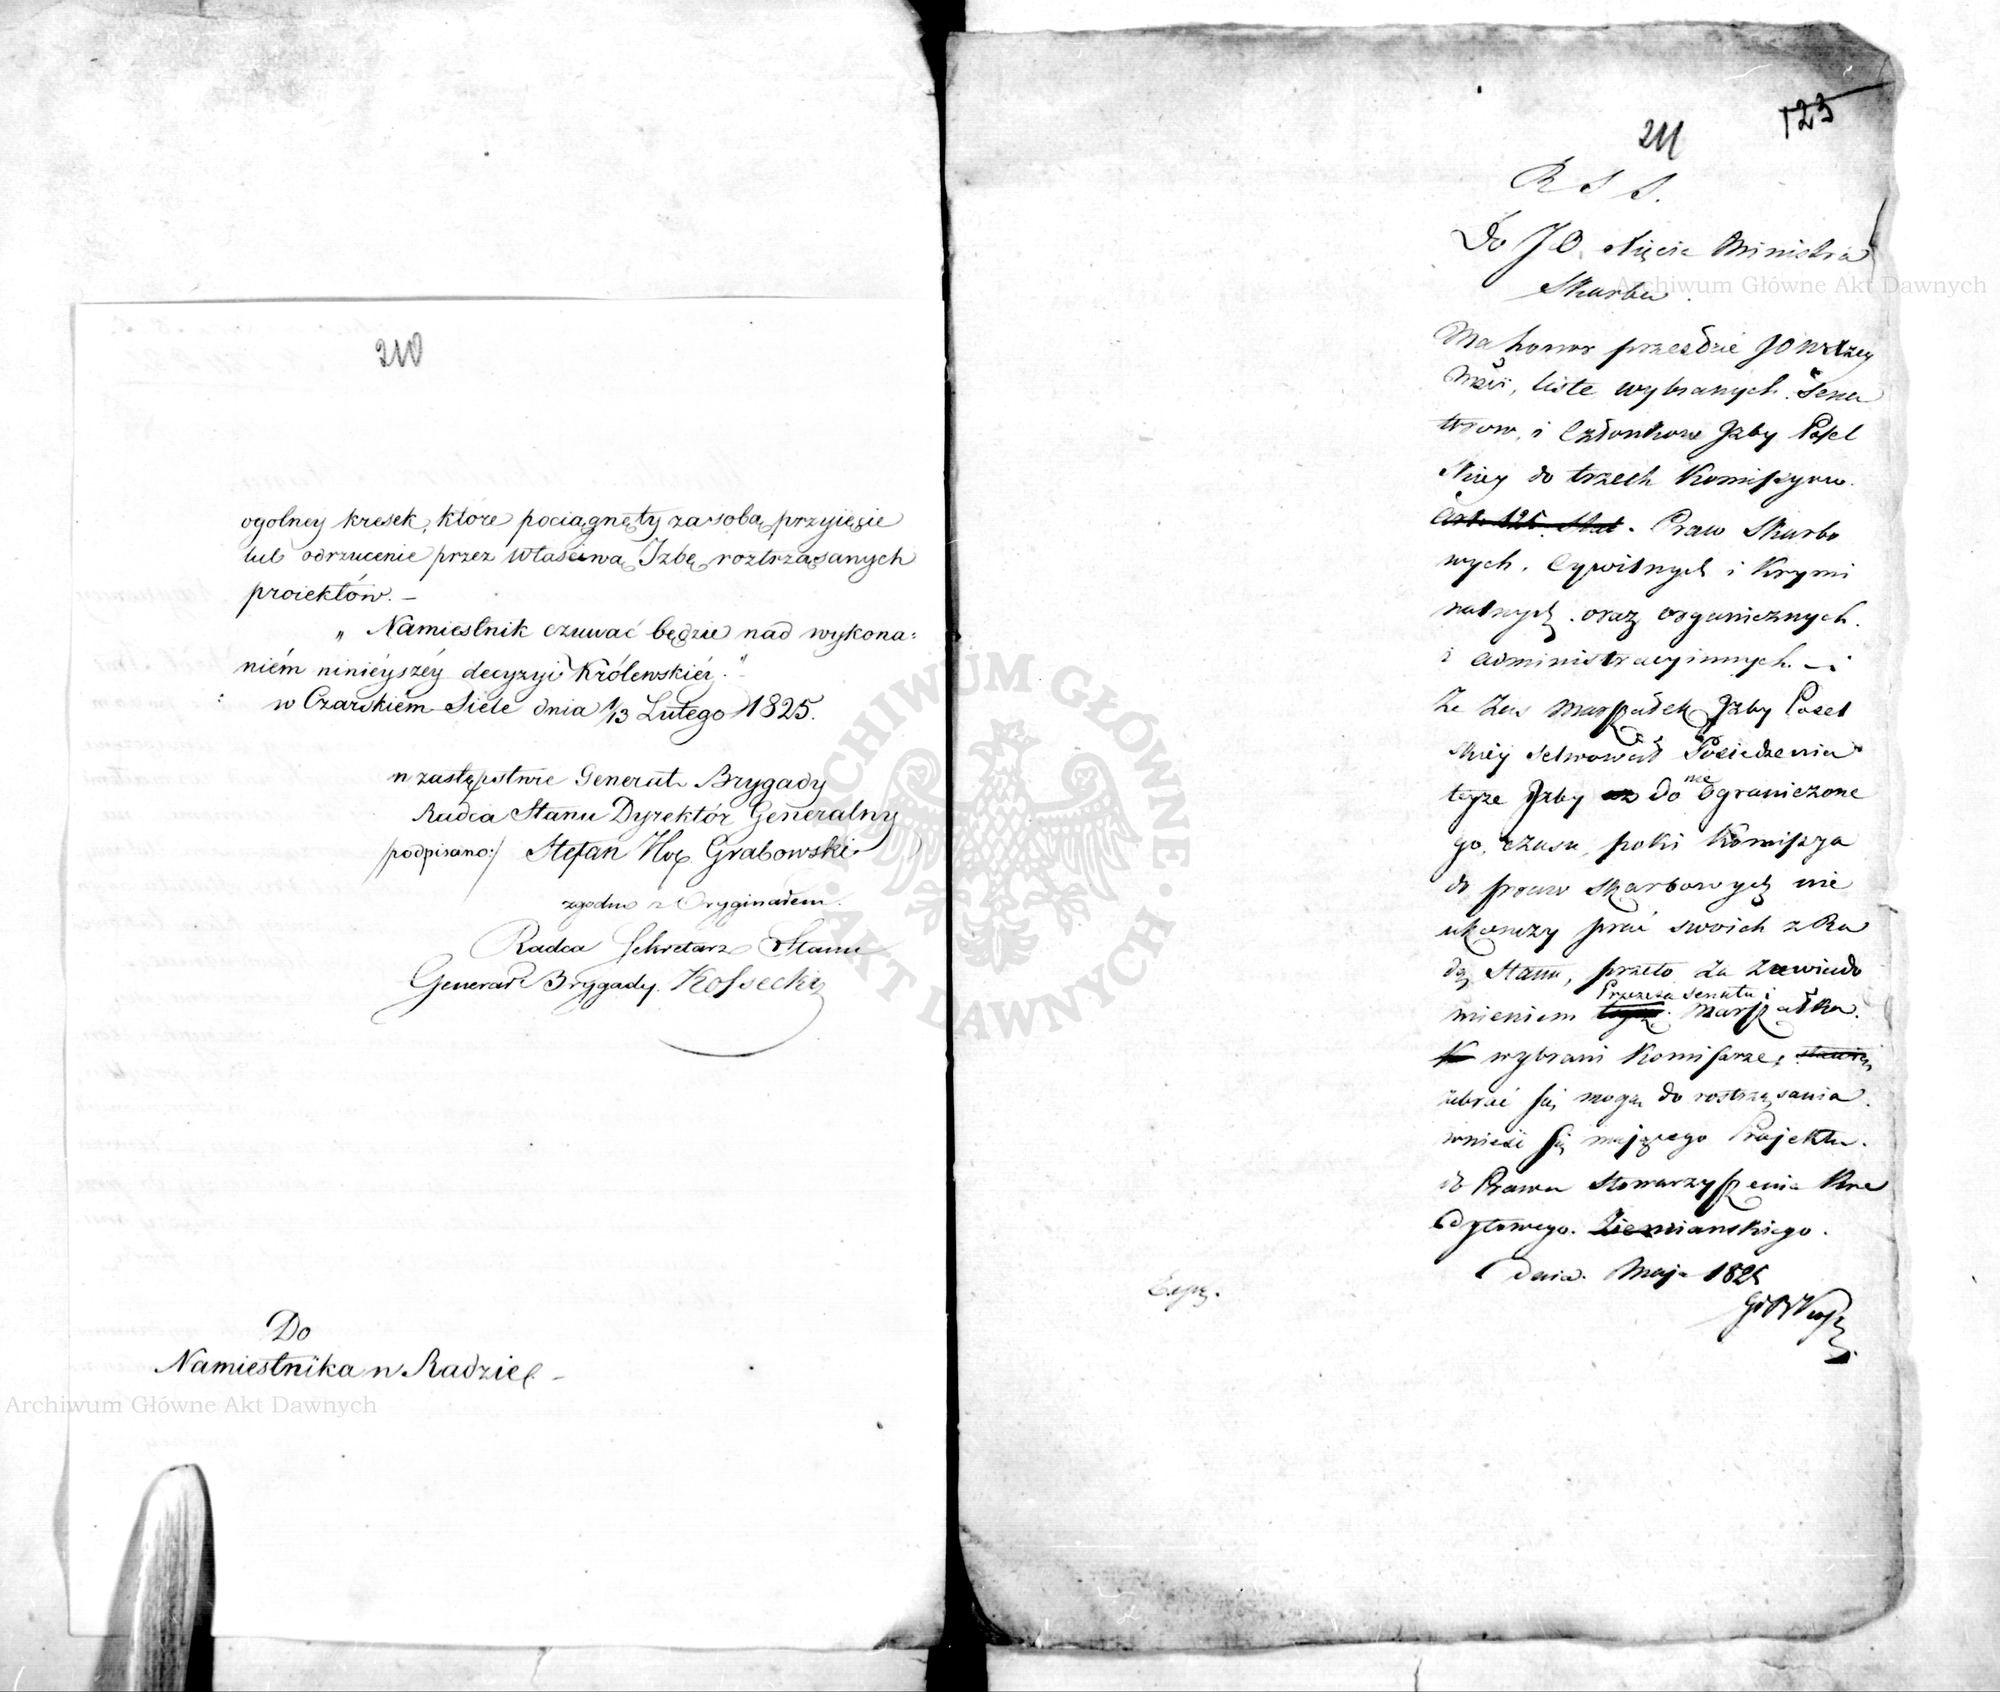 210
ogolney kresek, które pociągnęły za sobą przyięcie
lub odrzucenie przez właściwą Izbę roztrząsanych
proiektów. —
„ Namiestnik czuwać będzie nad wykona:
niém niniéyszéy decyzyi Królewskiéy."
w Czarskiem Siele dnia 1/13 Lutego 1825.
w zastępstwie Generał Brygady
Radca Stanu Dyrektór Generalny
/podpisano:/ Stefan Hr. Grabowski
zgodno z Oryginałem.
Radca Sekretarz Stanu
Generał Brygady. Kossecki
Do
Namiestnika w Radzie. —
123
211
R S S.
Do J O. Xięcia Ministra
Skarbu.
Ma honor przesłać J O W Xżcey
Mści, listę wybranych Sena
torow, i Członkow Izby Posel
skiey do trzech Komissyow.
Art. 125. Stat. Praw Skarbo
wych, Cywilnych i Krymi
nalnych. oraz organicznych.
i administracyinnych. —
Ze zaś Marszałek Izby Posel
skiey Posiedzenia
teyże Izby do nie ograniczone
go, czasu, poki Komissya
do praw skarbowych nie
ukończy prac swoich z Ra
dą Stanu, przeto za zawiado
mieniem Prezesa Senatu i Marszałka.
wybrani Komisarze,
zebrać się mogą do rostrząsania
wnieść się maiącego Projektu.
do Prawa Stowarzyszenia Kre
dytowego. Ziemianskiego.
dnia. Maja 1825
Archiwum Główne Akt Dawnych
Archiwum Główne Akt Dawnych
ARCHIWUM GŁÓWNE · AKT DAWNYCH ·